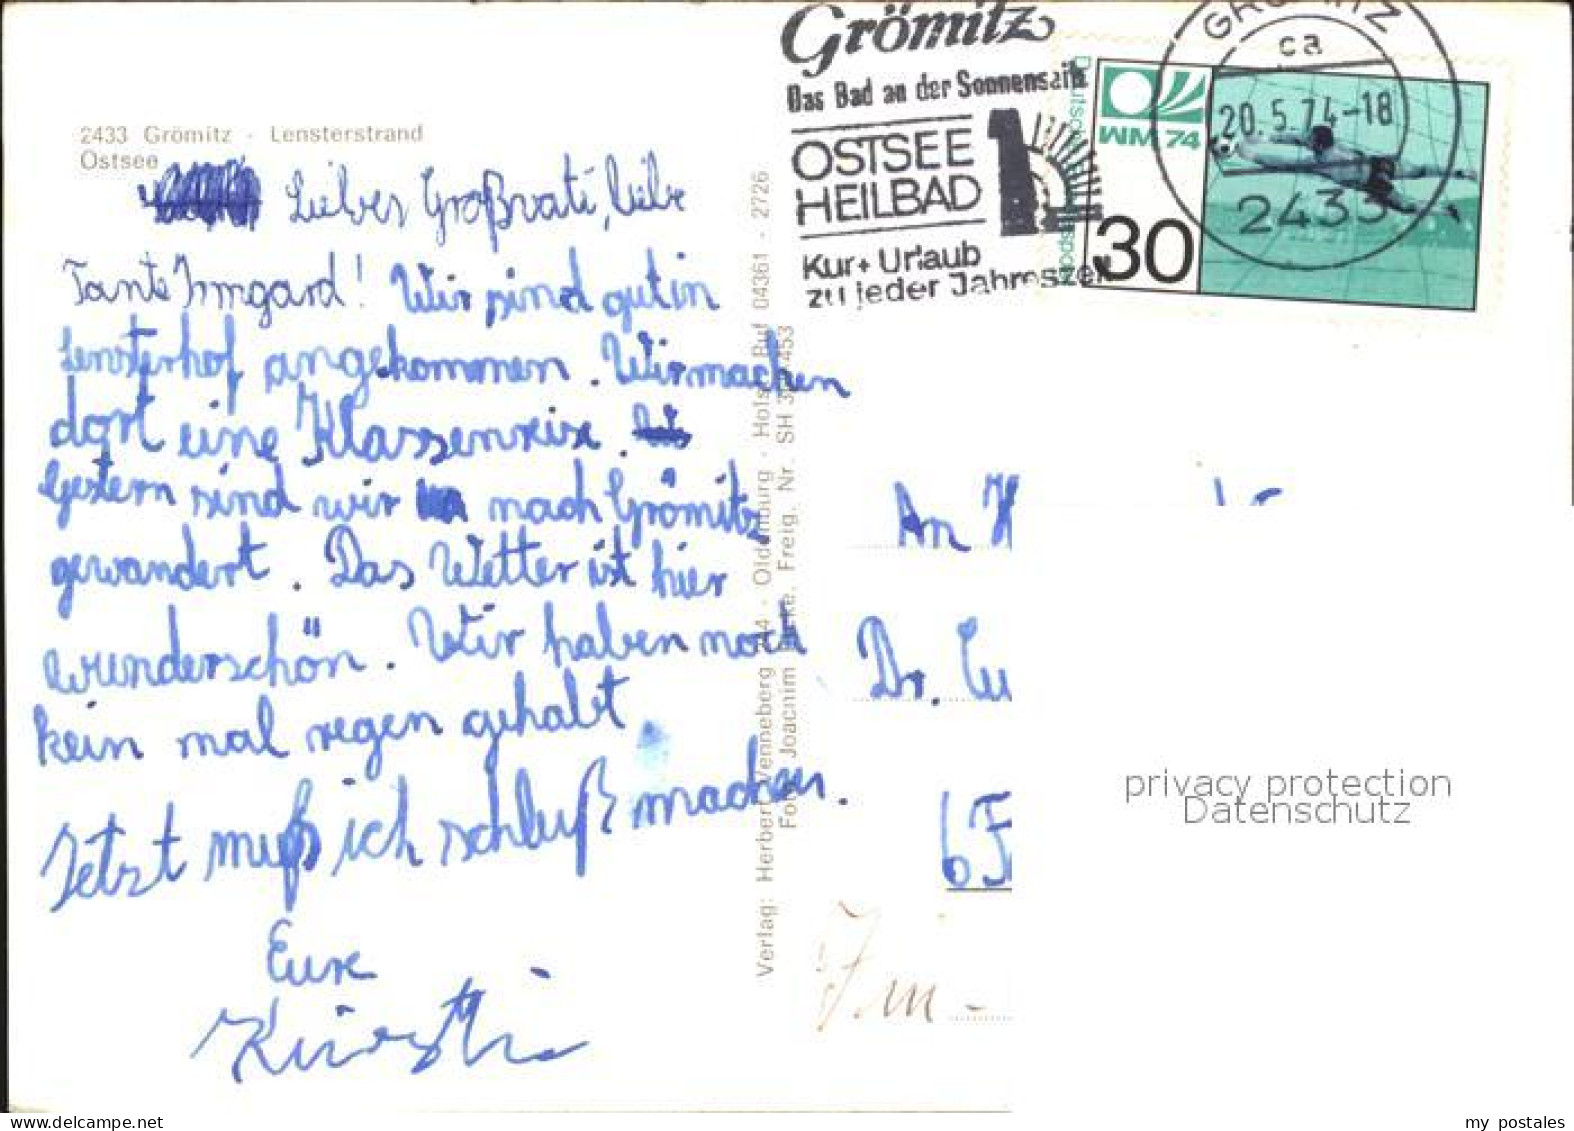 Grömitz
Das Bad an der Sonnenseite
OSTSEE
HEILBAD
Kur + Urlaub
zu jeder Jahreszeit
GRÖMITZ
ca
20.5.74-18
2433
WM 74
30
2433 Grömitz - Lensterstrand
Ostsee
Lieber Großvati, liebe
Tante Irmgard! Wir sind gut in
Lensterhof angekommen. Wir machen
dort eine Klassenreise.
Gestern sind wir nach Grömitz
gewandert. Das Wetter ist hier
wunderschön. Wir haben noch
kein mal regen gehabt
Jetzt muß ich schluß machen.
Eure
Kirstin
Verlag: Herbert Venneberg 244 - Oldenburg - Holst. Ruf 04361 - 2726
Foto: Joachim Freig. Nr. SH 453
An H
Dr. Lu
6 F
privacy protection
Datenschutz
www.delcampe.net
my_postales